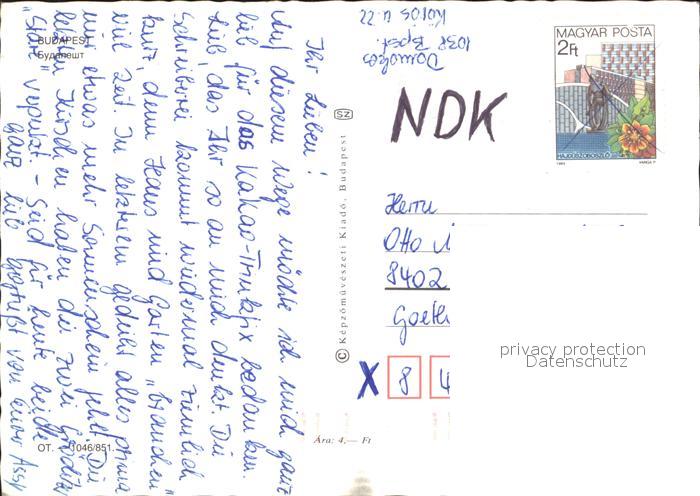 BUDAPEST
Будапешт
Ihr Lieben!
Auf diesem Wege möchte ich mich ganz
lieb für das Kakao-Trinkfix bedanken.
Lieb, das Ihr so an mich denkt. Die
Schreiberei kommt wiedermal ziemlich
kurz, denn Haus und Garten "brauchen"
viel Zeit. In letzterem gedeiht alles prima
nur etwas mehr Sonnenschein fehlt. Die
leeren Kirschen haben die zwei
verputzt - Seid für heute beide
ganz lieb gegrüßt von Eurer
OT. – 1046/851
SZ
© Képzőművészeti Kiadó, Budapest
Ára: 4,— Ft
Domokos
1038 Bpest.
Kőrös u. 22
NDK
MAGYAR POSTA
2Ft
HAJDÚSZOBOSZLÓ
1983 VARGA P.
Herrn
Otto
8402
Goeth
X 8 4
privacy protection
Datenschutz